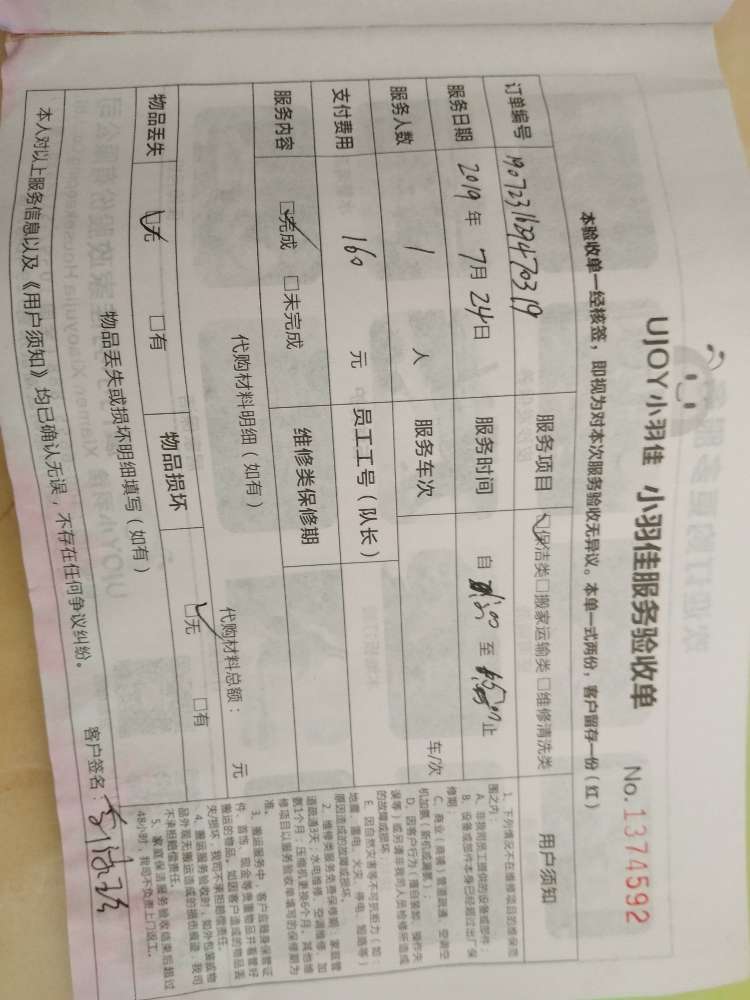 UJOY小羽佳 小羽佳服务验收单 No.1374592
本验收单一经核签，即视为对本次服务验收无异议。本单一式两份，客户留存一份（红）
订单编号 服务项目 □保洁类□搬家运输类□维修清洗类 用户须知
服务日期 2019年7月24日 服务时间 自 至 止
服务人数 1 人 服务车次 车/次
支付费用 160 元 员工工号（队长）
服务内容 □完成 □未完成 维修类保修期
代购材料明细（如有） 代购材料总额： 元
物品丢失 □无 □有 物品损坏 □无 □有
物品丢失或损坏明细填写（如有）
本人对以上服务信息以及《用户须知》均已确认无误，不存在任何争议纠纷。 客户签名：
1、下列情况不在维修项目的维保范
围之内：
A、非我司员工提供的设备或部件；
B、设备或部件本身已经超过出厂保
修期；
C、商业（商铺）管道疏通、空调空
机加氟（新机或漏氟）；
D、因客户行为（擅自装卸、操作失
误等）或另请非我司人员检修所造成
的故障或损坏
E、因自然灾害等不可抗拒力（如：
地震、雷电、火灾、停电、短路等）
原因造成的故障或损坏。
2、维修类服务免费保修期：家庭管
道疏通3天，水电维修、空调维修、加
氨1个月；压缩机更换6个月。其他维
修项目以服务验收单填写的保修期为
准。
3、搬运服务中，客户应随身保管证
件、首饰、现金等贵重物品并看管好
搬运的物品。如因客户造成的物品丢
失/损坏，我司不承担赔偿责任。
4、搬运服务验收时，如外包装或物
品外观无搬运造成的损伤痕迹，我司
不承担赔偿责任。
5、家庭保洁服务验收结束后超过
48小时，我司不负责上门返工。